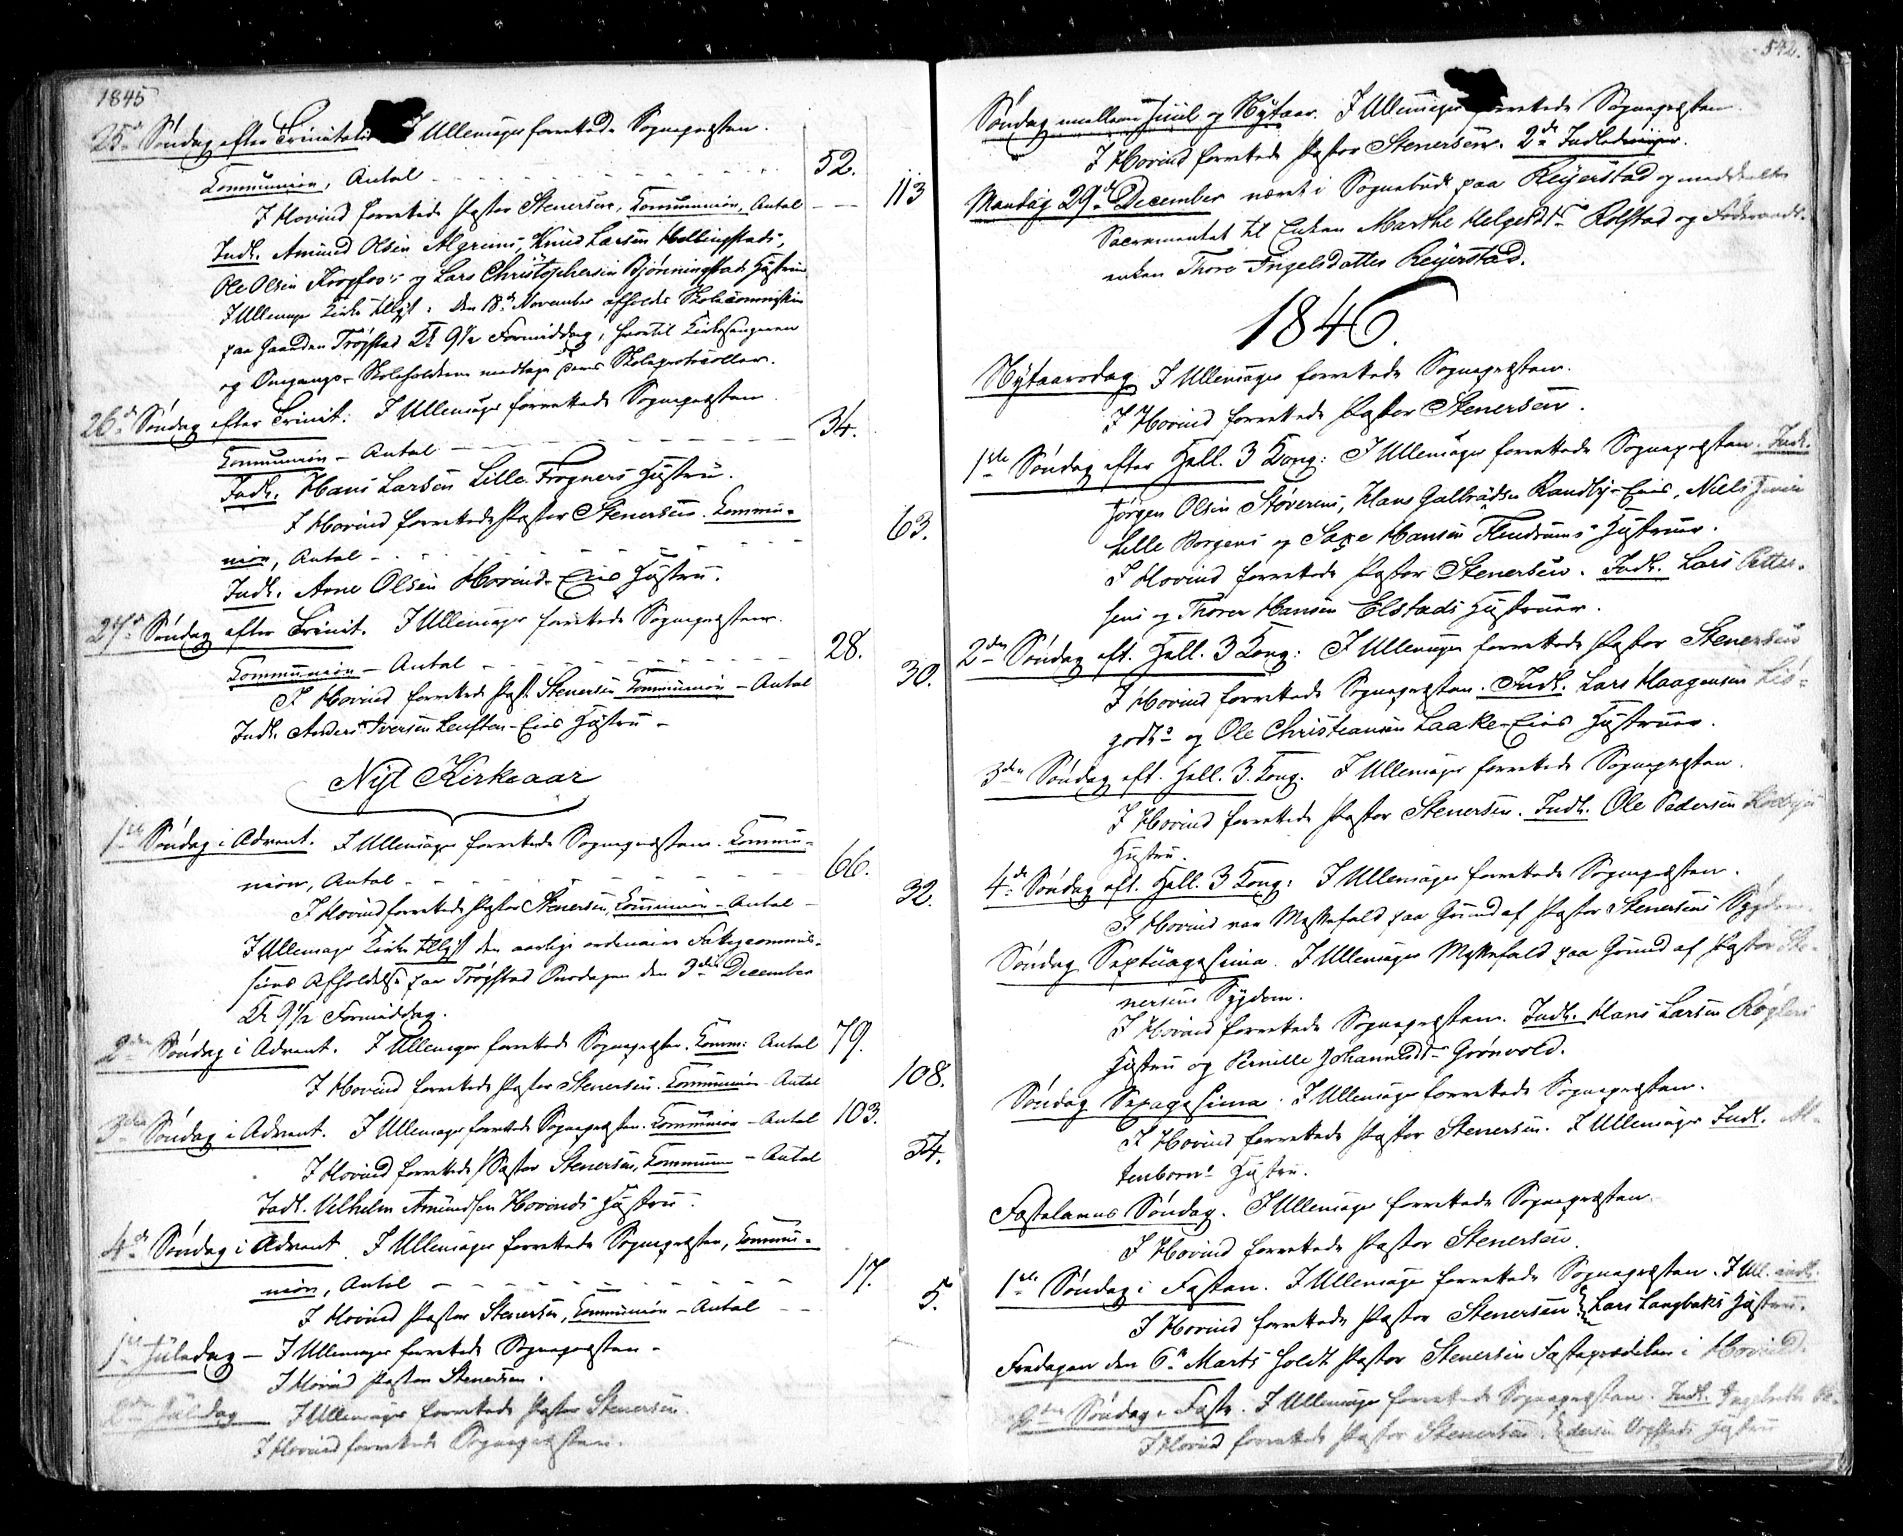 1845
25de Søndag efter Trinitatis I Ullensager forrettede Sognepræsten.
Communion, Antal 52.
I Hovind forrettede Pastor Stenersen, Communion, Antal 113
Indl. Amund Olsen Algrims, Knud Larsen Holbingstads,
Ole Olsen Krogfos's og Lars Christophersen Bjønningstads Hustruer
I Ullensager Kirke tillyst: Den 18de November afholdes Skolecommission
paa Gaarden Trøgstad Kl 9½ Formiddag, hvortil Kirkesangeren
og Omgangs-Skoleholderne medtage deres Skoleprotocoller.
26de Søndag efter Trinit. I Ullensager forrettede Sognepræsten
Communion - Antal 34.
Indl. Hans Larsen Lille Frogners Hustru.
I Hovind forrettede Pastor Stenersen. Commu-
nion, Antal 63.
Indl. Arne Olsen Hovind-Eies Hustru.
27de Søndag efter Trinit. I Ullensager forrettede Sognepræsten.
Communion - Antal 28.
I Hovind forrettede Past. Stenersen Communion - Antal 30.
Indl. Anders Iversen -Eies Hustru -
Nyt Kirkeaar
1ste Søndag i Advent. I Ullensager forrettede Sognepræsten. Commu-
nion, Antal 66.
I Hovind forrettede Pastor Stenersen, Communion - Antal 32.
I Ullensager Kirke tillyst den aarlige ordinaire Fattigcommis-
sions Afholdelse paa Trøgstad Onsdagen den 3die December
Kl 9½ Formiddag.
2den Søndag i Advent. I Ullensager forrettede Sognepræsten. Comm: Antal 79.
I Hovind forrettede Pastor Stenersen. Communion - Antal 108.
3die Søndag i Advent. I Ullensager forrettede Sognepræsten. Communion - Antal 103.
I Hovind forrettede Pastor Stenersen, Communion - Antal 54.
Indl. Velhelm Amundsen Hovinds Hustru.
4de Søndag i Advent. I Ullensager forrettede Sognepræsten, Commu-
nion, Antal 17.
I Hovind Pastor Stenersen, Communion - Antal 5.
1ste Juledag - I Ullensager forrettede Sognepræsten -
I Hovind Pastor Stenersen.
2den Juledag I Ullensager forrettede Pastor Stenersen.
I Hovind forrettede Sognepræsten.
542.
Søndag mellem Juul og Nytaar. I Ullensager forrettede Sognepræsten.
I Hovind forrettede Pastor Stenersen. 2de Indledninger.
Mandag 29de December været i Sognebud paa Reyerstad og meddeelte
Sacramentet til Enken Marthe Helgesdtr Rolstad og Føderaads-
enken Thore Engelsdatter Reyerstad.
1846.
Nytaarsdag I Ullensager forrettede Sognepræsten.
I Hovind forrettede Pastor Stenersen.
1ste Søndag efter Hell. 3 Kong: I Ullensager forrettede Sognepræsten. Indl.
Jørgen Olsen Støverens, Hans Gulbrandsen Randby-Eies, Niels
Lille Borgens og Saxe Hansen Flendrums Hustruer.
I Hovind forrettede Pastor Stenersen. Indl. Lars Petter-
sens og Thorer Hansen Elstads Hustruer.
2den Søndag eft. Hell. 3 Kong: I Ullensager forrettede Pastor Stenersen
I Hovind forrettede Sognepræsten. Indl. Lars Haagensen Lø-
gods og Ole Christiansen Laake-Eies Hustruer.
3die Søndag eft. Hell. 3. Kong. I Ullensager forrettede Sognepræsten.
I Hovind forrettede Pastor Stenersen. Indl. Ole Pedersen
Hustru.
4de Søndag eft. Hell. 3 Kong: I Ullensager forrettede Sognepræsten.
I Hovind var Messefald paa Grund af Pastor Stenersens Sygdom.
Søndag Septuagesima. I Ullensager Messefald paa Grund af Pastor Ste-
nersens Sygdom.
I Hovind forrettede Sognepræsten. Indl. Hans Larsen Røglers
Hustru og Pernille Johannesdtr Grønvold.
Søndag Sexagesima. I Ullensager forrettede Sognepræsten.
I Hovind forrettede Pastor Stenersen. I Ullensager Indl. Al-
tenborns Hustru.
Fastelavns Søndag. I Ullensager forrettede Sognepræsten.
I Hovind forrettede Pastor Stenersen.
1ste Søndag i Fasten. I Ullensager forrettede Sognepræsten. I Ull. indl.
I Hovind forrettede Pastor Stenersen Lars Langbaks Hustru.
Fredagen den 6te Marts holdt Pastor Stenersen Fasteprædiken i Hovind.
2den Søndag i Faste. I Ullensager forrettede Sognepræsten. Indl. Ingebrette
I Hovind forrettede Pastor Stenersen. Hustru